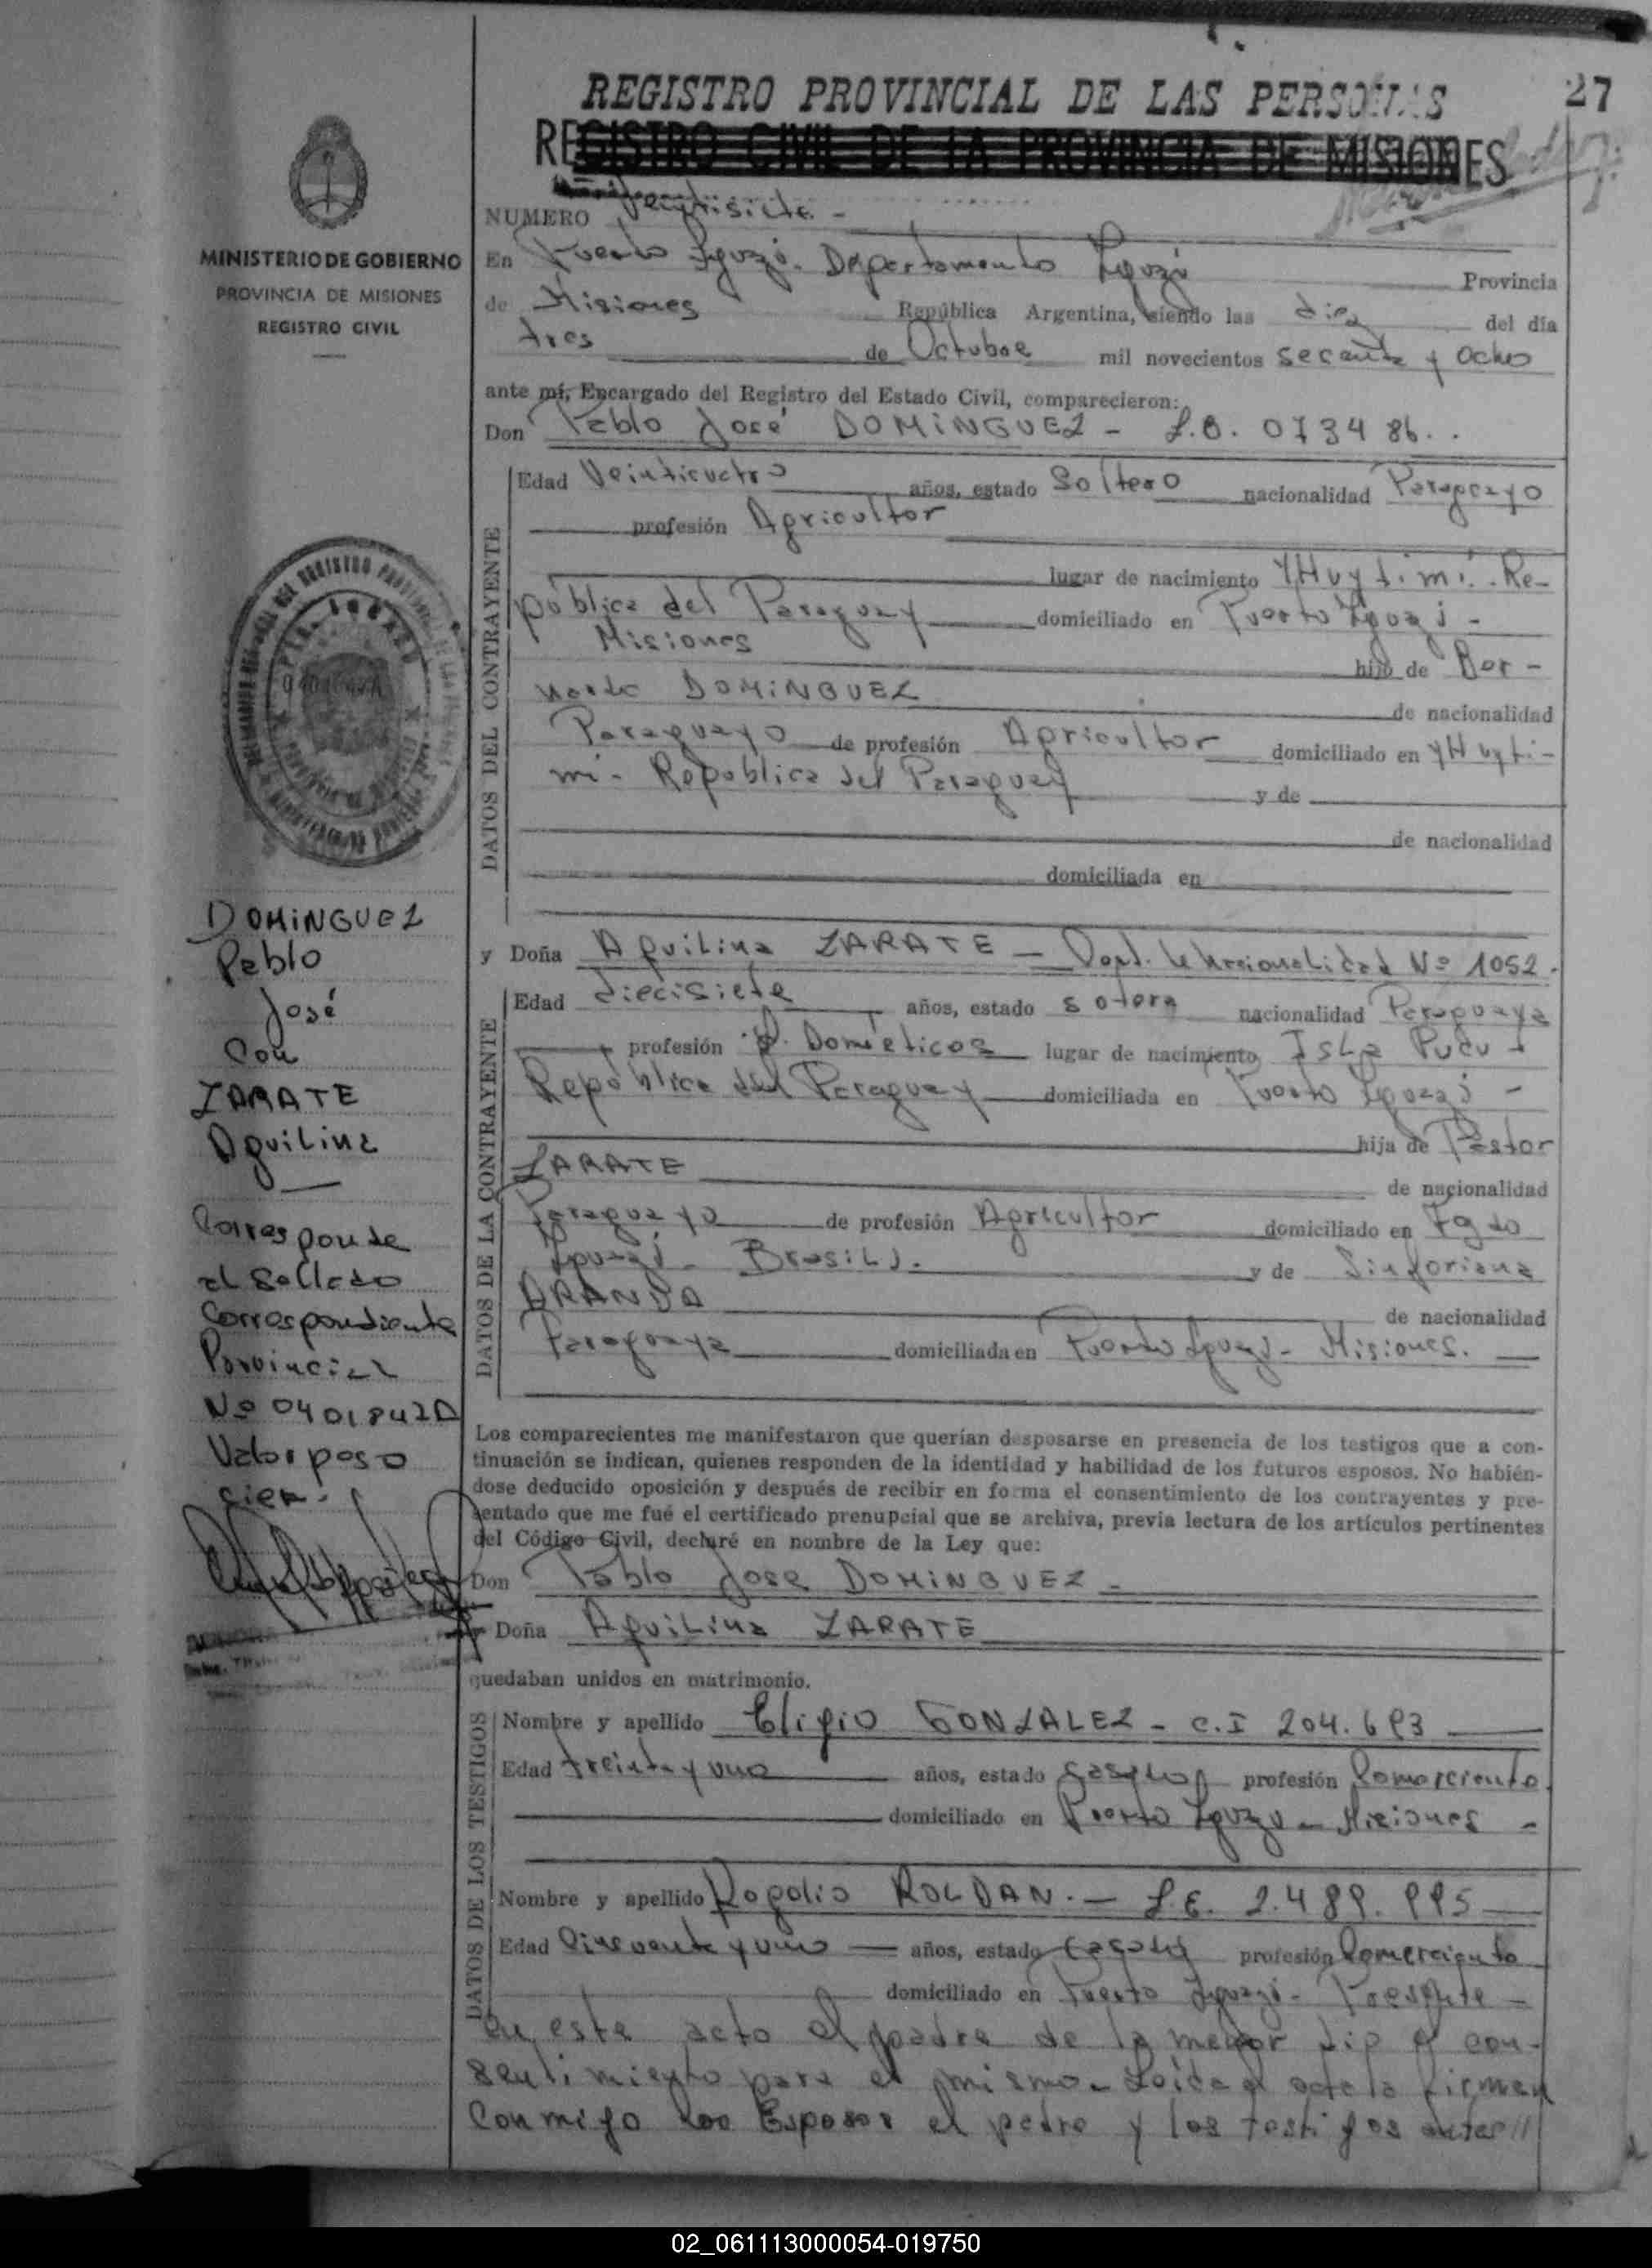 REGISTRO PROVINCIAL DE LAS PERSONAS
27
REGISTRO CIVIL DE LA PROVINCIA DE MISIONES
NUMERO Veintisiete -
MINISTERIO DE GOBIERNO
PROVINCIA DE MISIONES
REGISTRO CIVIL
En Puerto Iguazú. Departamento Iguazú Provincia
de Misiones República Argentina, siendo las diez del día
tres de Octubre mil novecientos secenta y ocho
ante mí, Encargado del Registro del Estado Civil, comparecieron:
Don Pablo José DOMINGUEZ -
DATOS DEL CONTRAYENTE
Edad Veinticuatro años, estado Soltero nacionalidad Paraguayo
profesión Agricultor
lugar de nacimiento YHuytimí.. Re-
pública del Paraguay domiciliado en Puerto Iguazú -
Misiones hijo de Ber-
nardo DOMINGUEZ de nacionalidad
Paraguayo de profesión Agricultor domiciliado en YHuyti-
mi- República del Paraguay y de
de nacionalidad
domiciliada en
DOMINGUEZ
Pablo
José
Con
ZARATE
Aquilina
y Doña Aquilina ZARATE - Nº 1052.
DATOS DE LA CONTRAYENTE
Edad diecisiete años, estado sotera nacionalidad Paraguaya
profesión Q. Dométicos lugar de nacimiento Isla Pucu -
República del Paraguay domiciliada en Puerto Iguazú -
hija de Pastor
ZARATE de nacionalidad
Paraguayo de profesión Agricultor domiciliado en Fg do
Iguazú - Brasil). y de Sinforiana
ARANDA de nacionalidad
Paraguaya domiciliada en Puerto Iguazú - Misiones.
Corresponde
el Sellado
Correspondiente
Provincial
Nº 0401842D
Valor peso
cien.
Los comparecientes me manifestaron que querían desposarse en presencia de los testigos que a con-
tinuación se indican, quienes responden de la identidad y habilidad de los futuros esposos. No habién-
dose deducido oposición y después de recibir en forma el consentimiento de los contrayentes y pre-
sentado que me fué el certificado prenupcial que se archiva, previa lectura de los artículos pertinentes
del Código Civil, declaré en nombre de la Ley que:
Don Pablo Jose DOMINGUEZ -
y Doña Aquilina ZARATE
quedaban unidos en matrimonio.
DATOS DE LOS TESTIGOS
Nombre y apellido Eligio GONZALEZ - C.I 204.693
Edad treinta y uno años, estado casado profesión Comerciante
domiciliado en Puerto Iguazu - Misiones -
Nombre y apellido Rogelio ROLDAN. - L.E. 2.489.995
Edad Cincuenta y uno años, estado Casado profesión Comerciante
domiciliado en Puerto Iguazú - Presente
en este acto el padre de la menor dio el con-
sentimiento para el mismo. Leída el acta la firman
conmigo los Esposos el padre y los testigos antes//
02_061113000054-019750